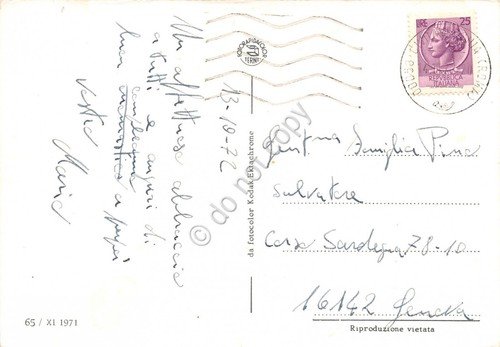 Un affettuoso abbraccio
a tutti e auguri di
compleanno
buon a papà
vostra
Maria
13-10-72
FOTORAPIDACOLOR
TERNI
da fotocolor Kodak Ektachrome
LIRE 25
REPUBBLICA
ITALIANA
Gent.ma Famiglia Pina
Salvatore
Corso Sardegna 78-10
16142 Genova
65 / XI 1971
Riproduzione vietata
do not copy